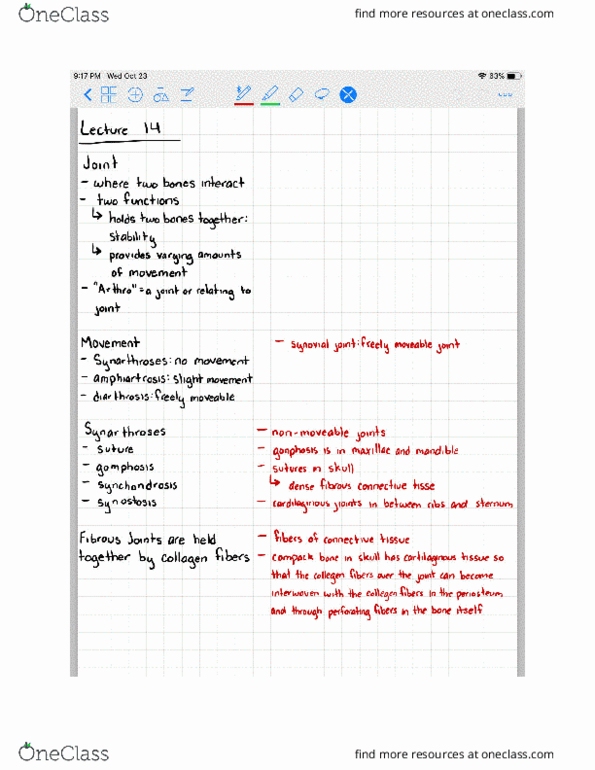 OneClass
find more resources at oneclass.com
9:17 PM Wed Oct 23
83%
Lecture 14
Joint
- where two bones interact
- two functions
↳ holds two bones together:
stability
↳ provides varying amounts
of movement
- "Arthro" = a joint or relating to
joint
Movement
- synovial joint: freely moveable joint
- Synarthroses: no movement
- amphiartrosis: slight movement
- diarthrosis: freely moveable
Synarthroses
- non-moveable joints
- suture
- gonphosis is in maxillae and mandible
- gomphosis
- sutures in skull
- synchondrosis
↳ dense fibrous connective tisse
- synostosis
- cardilaginous joints in between ribs and sternum
Fibrous Joints are held
- fibers of connective tissue
together by collagen fibers
- compack bone in skull has cartilagnous tissue so
that the collegen fibers over the joint can become
interwoven with the collegen fibers in the periosteum
and through perforating fibers in the bone itself
OneClass
find more resources at oneclass.com